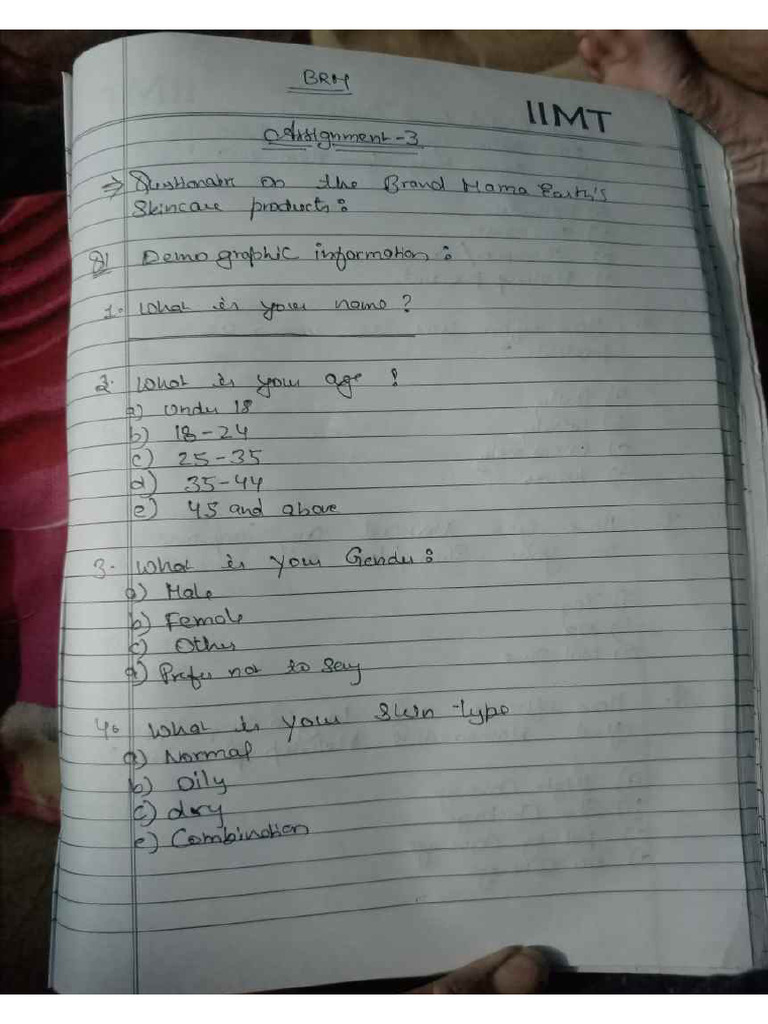 BRM
IIMT
Assignment-3
⇒ Questionaire on the Brand Mama Earth's
Skincare products:
Q1 Demographic information:
1. What is your name?
2. What is your age !
a) Under 18
b) 18-24
c) 25-35
d) 35-44
e) 45 and above
3. What is your Gender:
a) Male
b) Female
c) Other
d) Prefer not to say
4. What is your Skin type
a) Normal
b) Oily
c) dry
e) Combination